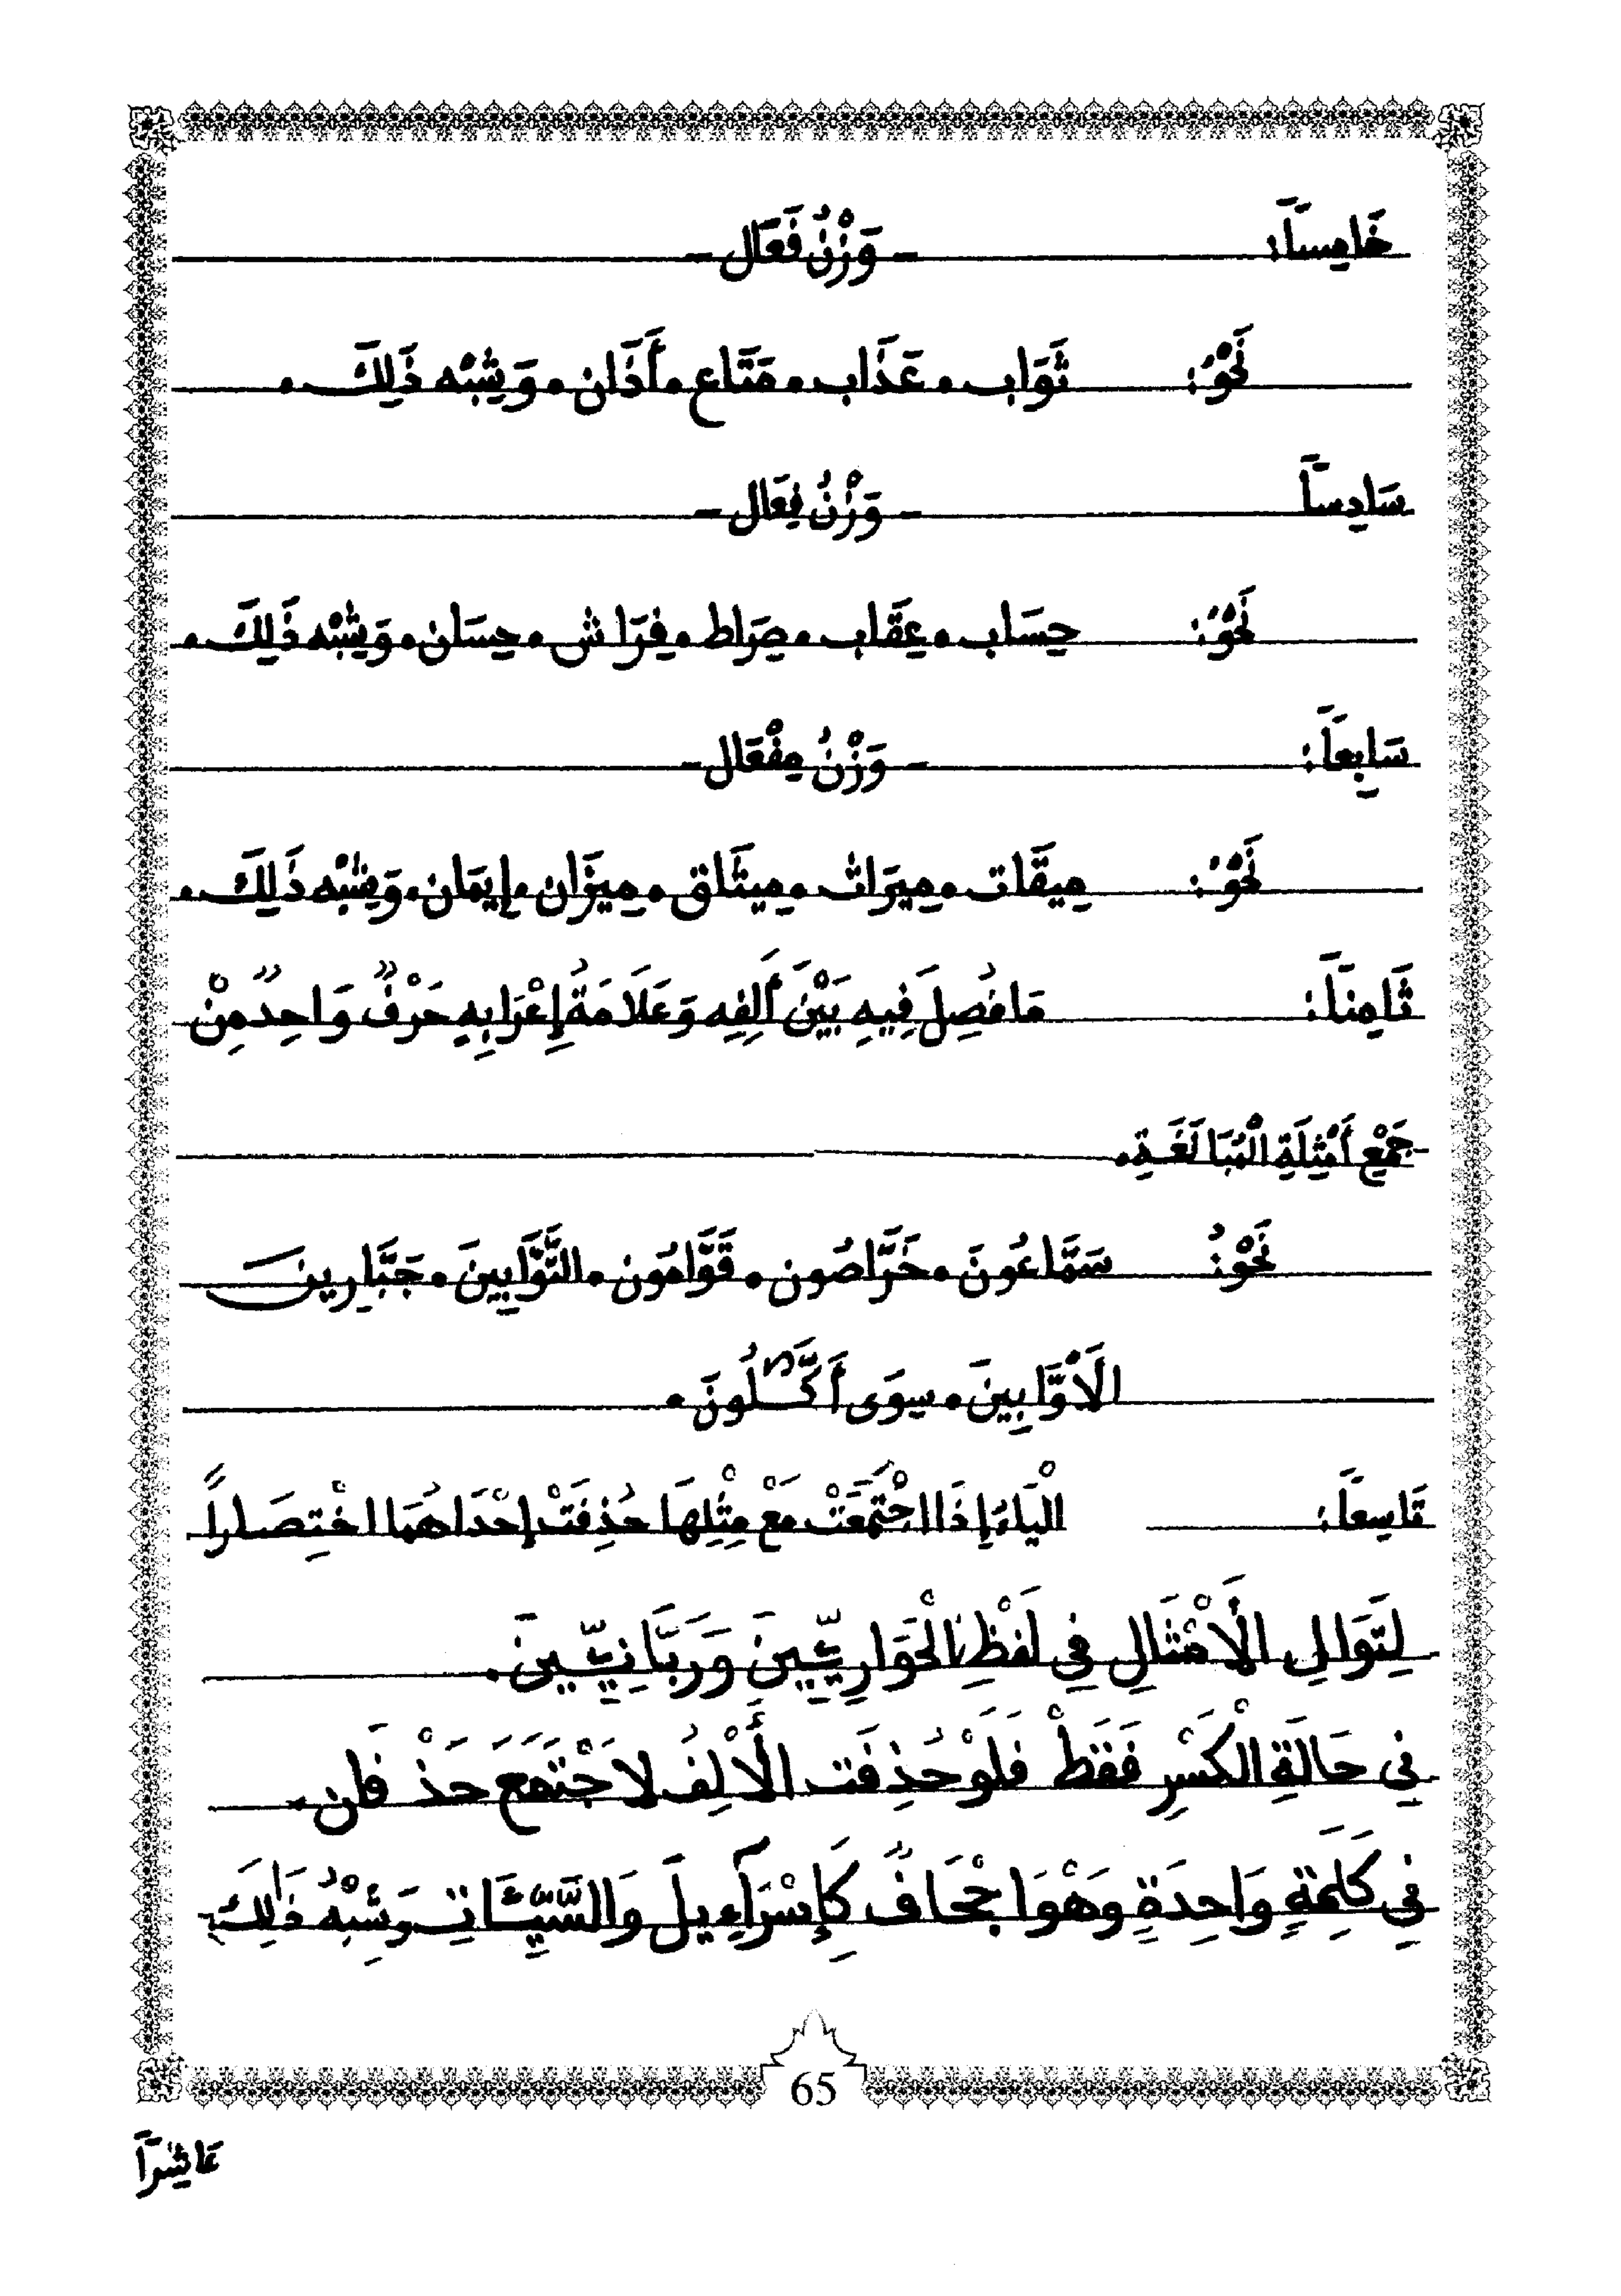 خَامِساً: - وَزْنُ فَعَال -
نَحْوُ: ثَوَاب. عَذَاب. مَتَاع. أَذَان. وَشِبْه ذَلِكَ.
سَادِساً - وَزْنُ فِعَال -
نَحْوُ: حِسَاب. عِقَاب. صِرَاط. فِرَاش. حِسَان. وَشِبْه ذَلِكَ.
سَابِعاً: - وَزْنُ مِفْعَال -
نَحْوُ: مِيقَات. مِيرَاث. مِيثَاق. مِيزَان. إِيمَان. وَشِبْه ذَلِكَ.
ثَامِناً: مَا فُصِلَ فِيهِ بَيْنَ أَلِفِهِ وَعَلَامَةُ إِعْرَابِهِ حَرْفٌ وَاحِدٌ مِنْ
جَمْعِ أَمْثِلَةِ الْمُبَالَغَةِ.
نَحْوُ: سَمَّاعُونَ. خَرَّاصُون. قَوَّامُون. التَّوَّابِينَ. جَبَّارِينَ
الْأَوَّابِينَ. سِوَى أَكَّـٰلُونَ.
تَاسِعاً: الْيَاءُ إِذَا اجْتَمَعَتْ مَعْ مِثْلِهَا حُذِفَتْ إِحْدَاهُمَا اخْتِصَاراً
لِتَوَالِ الْأَمْثَالِ فِي لَفْظِ الْحَوَارِيِّينَ وَرَبَّانِيِّينَ.
فِي حَالَةِ الْكَسْرِ فَقَطْ فَلَوْ حُذِفَت الْأَلِفُ لَاجْتَمَعَ حَذْفَان.
فِي كَلِمَةٍ وَاحِدَةٍ وَهْوَ اجْحَافٌ كَإِسْرَآءِيلَ وَالسَّيِّئَاتِ وَشِبْهُ ذَٰلِكَ
65
عَاشِراً